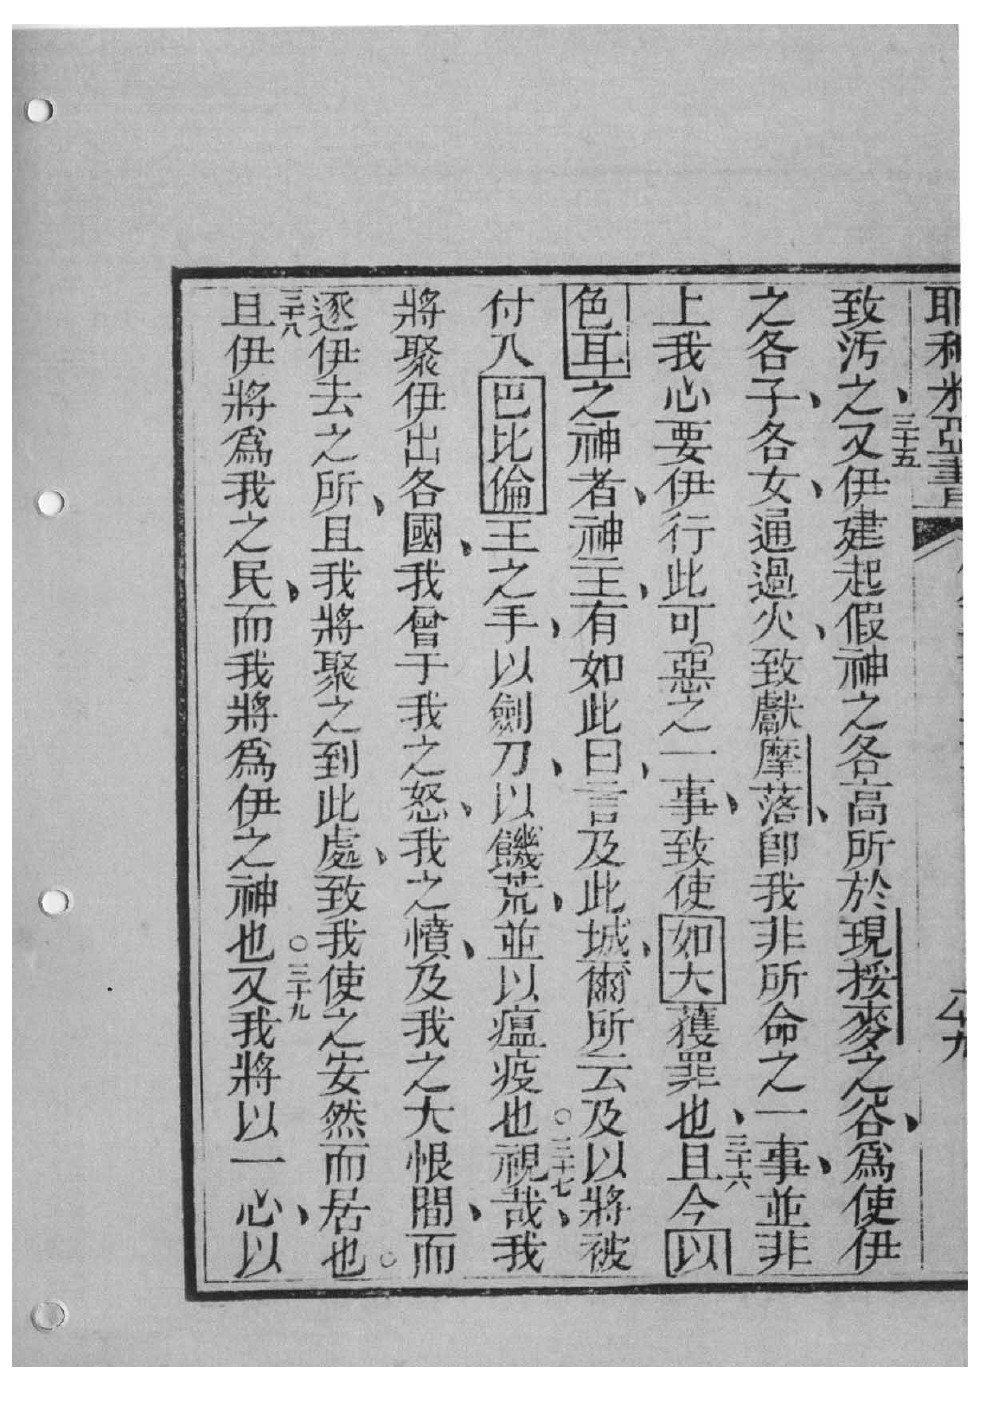 耶利米亞書 六十九
致汚之、三十五又伊建起假神之各高所於現接麥之谷、爲使伊
之各子、各女、通過火、致獻摩落、卽我非所命之一事、並非
上我心要伊行此可惡之一事、致使如大獲罪也、三十六且今以
色耳之神者、神主、有如此曰、言及此城、爾所云及以將被
付入巴比倫王之手、以劍刀、以饑荒、並以瘟疫也○三十七視哉、我
將聚伊出各國、我曾于我之怒、我之憤、及我之大恨間、而
逐伊去之所、且我將聚之到此處、致我使之安然而居也○
三十八且伊將爲我之民、而我將爲伊之神也○三十九又我將以一心、以